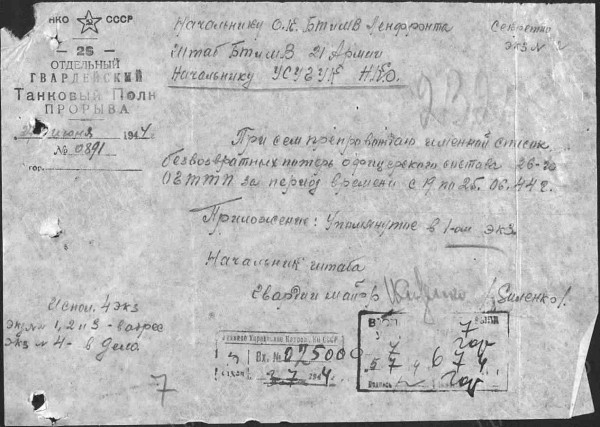 НКО СССР
26
ОТДЕЛЬНЫЙ
ГВАРДЕЙСКИЙ
Танковый Полк
ПРОРЫВА
июня 1944г.
№ 0891
гор.
Начальнику О.К. БТиМВ Ленфронта
Штаб БТиМВ 21 Армии
Начальнику УСУЗУК НКО.
Секретно
экз №
При сем препровождаю именной список
безвозвратных потерь офицерского состава 26-го
ОГТПП за период времени с 19 по 25.06.44г.
Приложение: Упомянутое в 1-ом экз.
Начальник штаба
Гвардии майор
Исполн. 4 экз
экз № 1, 2 и 3 - в адрес
экз № 4 - в дела
7
Вх. № 075000
7 1944г.
7